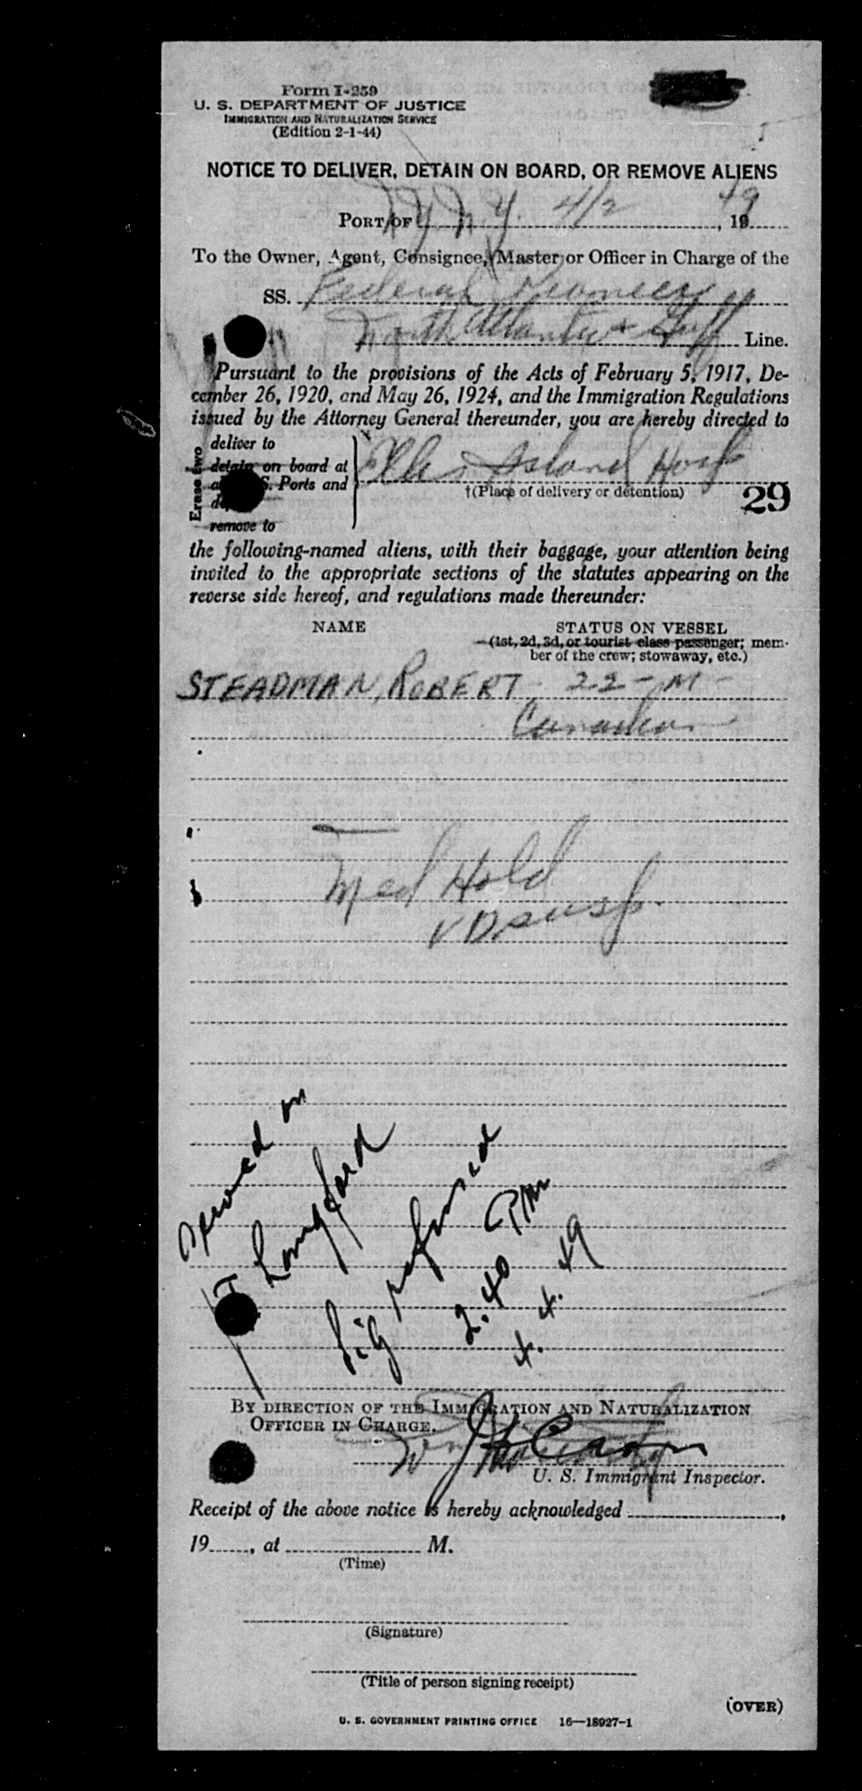 Form I-259
U. S. DEPARTMENT OF JUSTICE
IMMIGRATION AND NATURALIZATION SERVICE
(Edition 2-1-44)
NOTICE TO DELIVER, DETAIN ON BOARD, OR REMOVE ALIENS
PORT OF N.Y. 4/2, 1949
To the Owner, Agent, Consignee, Master or Officer in Charge of the
SS. Federal Pioneer
North Atlantic & Gulf Line.
Pursuant to the provisions of the Acts of February 5, 1917, De-
cember 26, 1920, and May 26, 1924, and the Immigration Regulations
issued by the Attorney General thereunder, you are hereby directed to
Erase two
deliver to
detain on board at
S. Ports and
remove to
Ellis Island Hosp
†(Place of delivery or detention)
29
the following-named aliens, with their baggage, your attention being
invited to the appropriate sections of the statutes appearing on the
reverse side hereof, and regulations made thereunder:
NAME STATUS ON VESSEL
(1st, 2d, 3d, or tourist class passenger; mem-
ber of the crew; stowaway, etc.)
STEADMAN, ROBERT 22-M-
Canadian
Med Hold
VD susp.
Served on
Longford
Sig refused
2.40 PM
4.4.49
BY DIRECTION OF THE IMMIGRATION AND NATURALIZATION
OFFICER IN CHARGE.
U. S. Immigrant Inspector.
Receipt of the above notice is hereby acknowledged ,
19 , at M.
(Time)
(Signature)
(Title of person signing receipt)
(OVER)
U. S. GOVERNMENT PRINTING OFFICE 16—18927-1